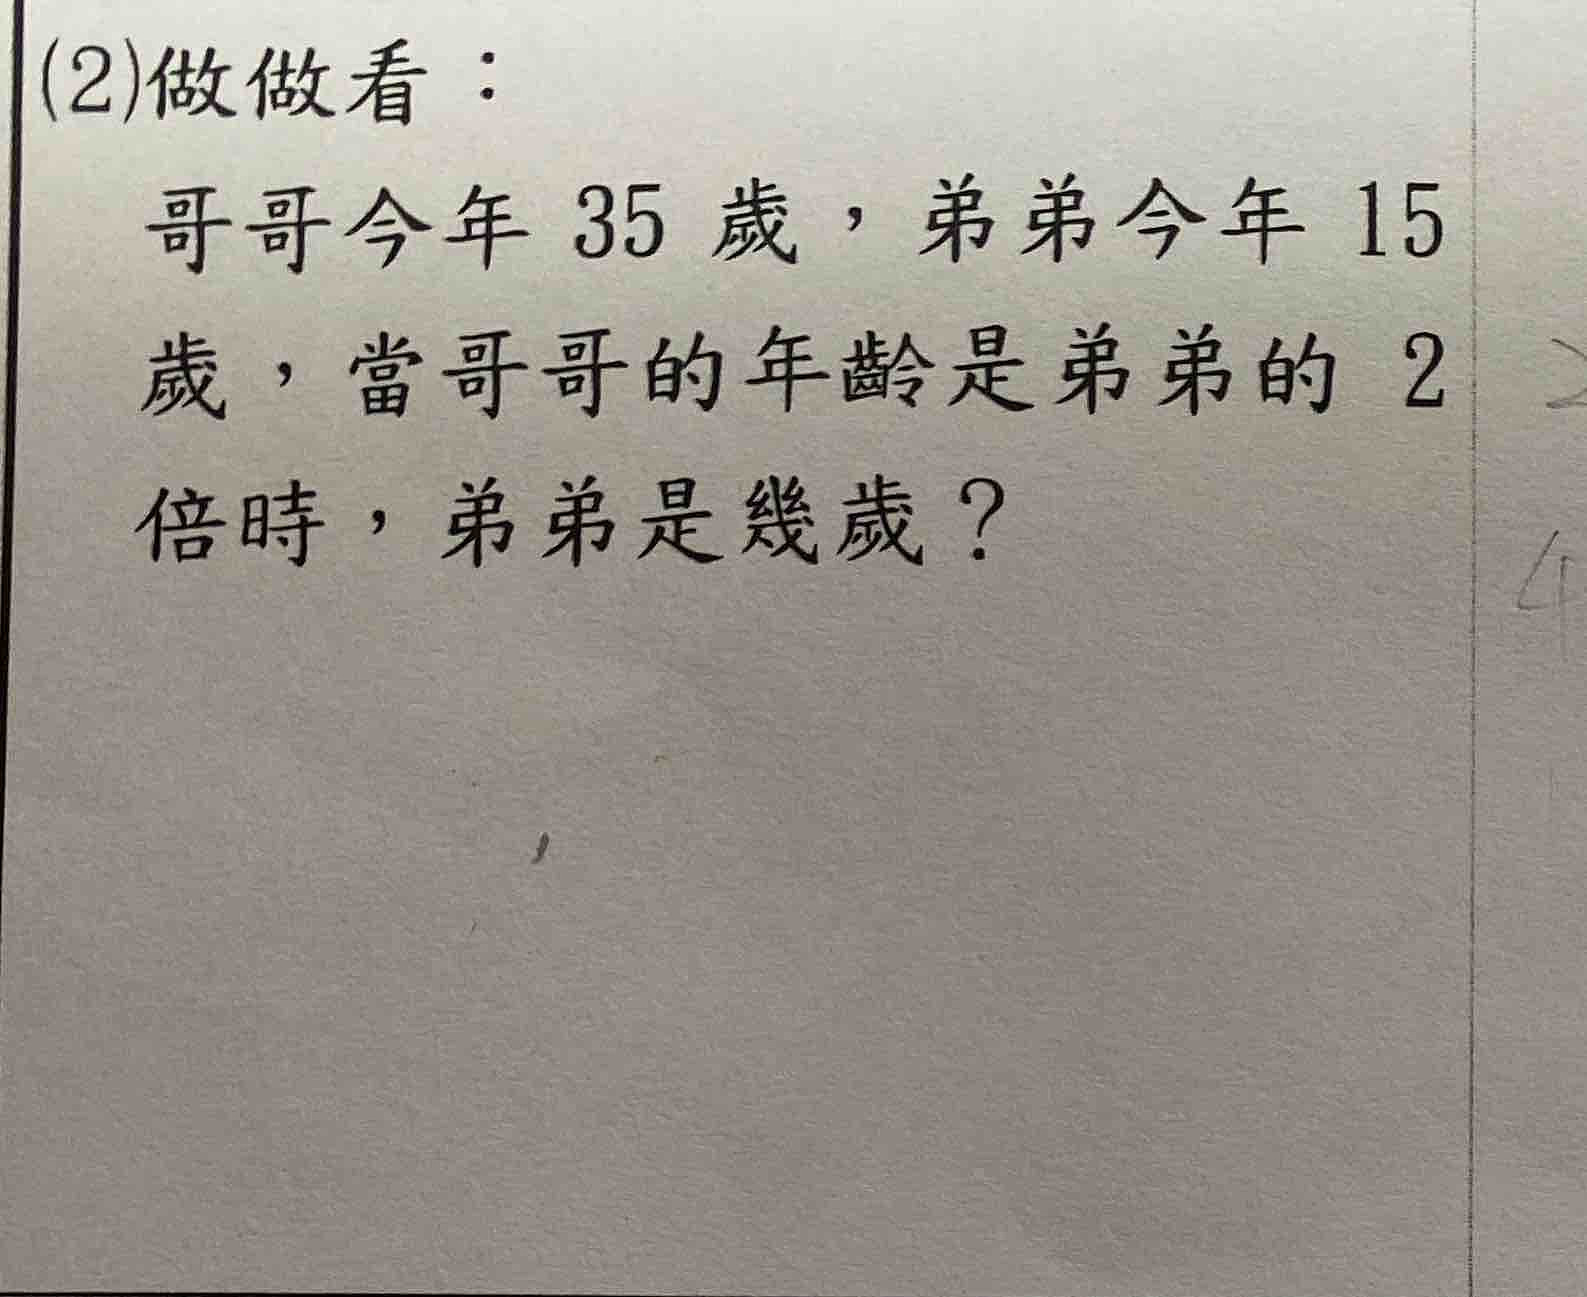 (2)做做看：
哥哥今年 35 歲，弟弟今年 15
歲，當哥哥的年齡是弟弟的 2
倍時，弟弟是幾歲？
4